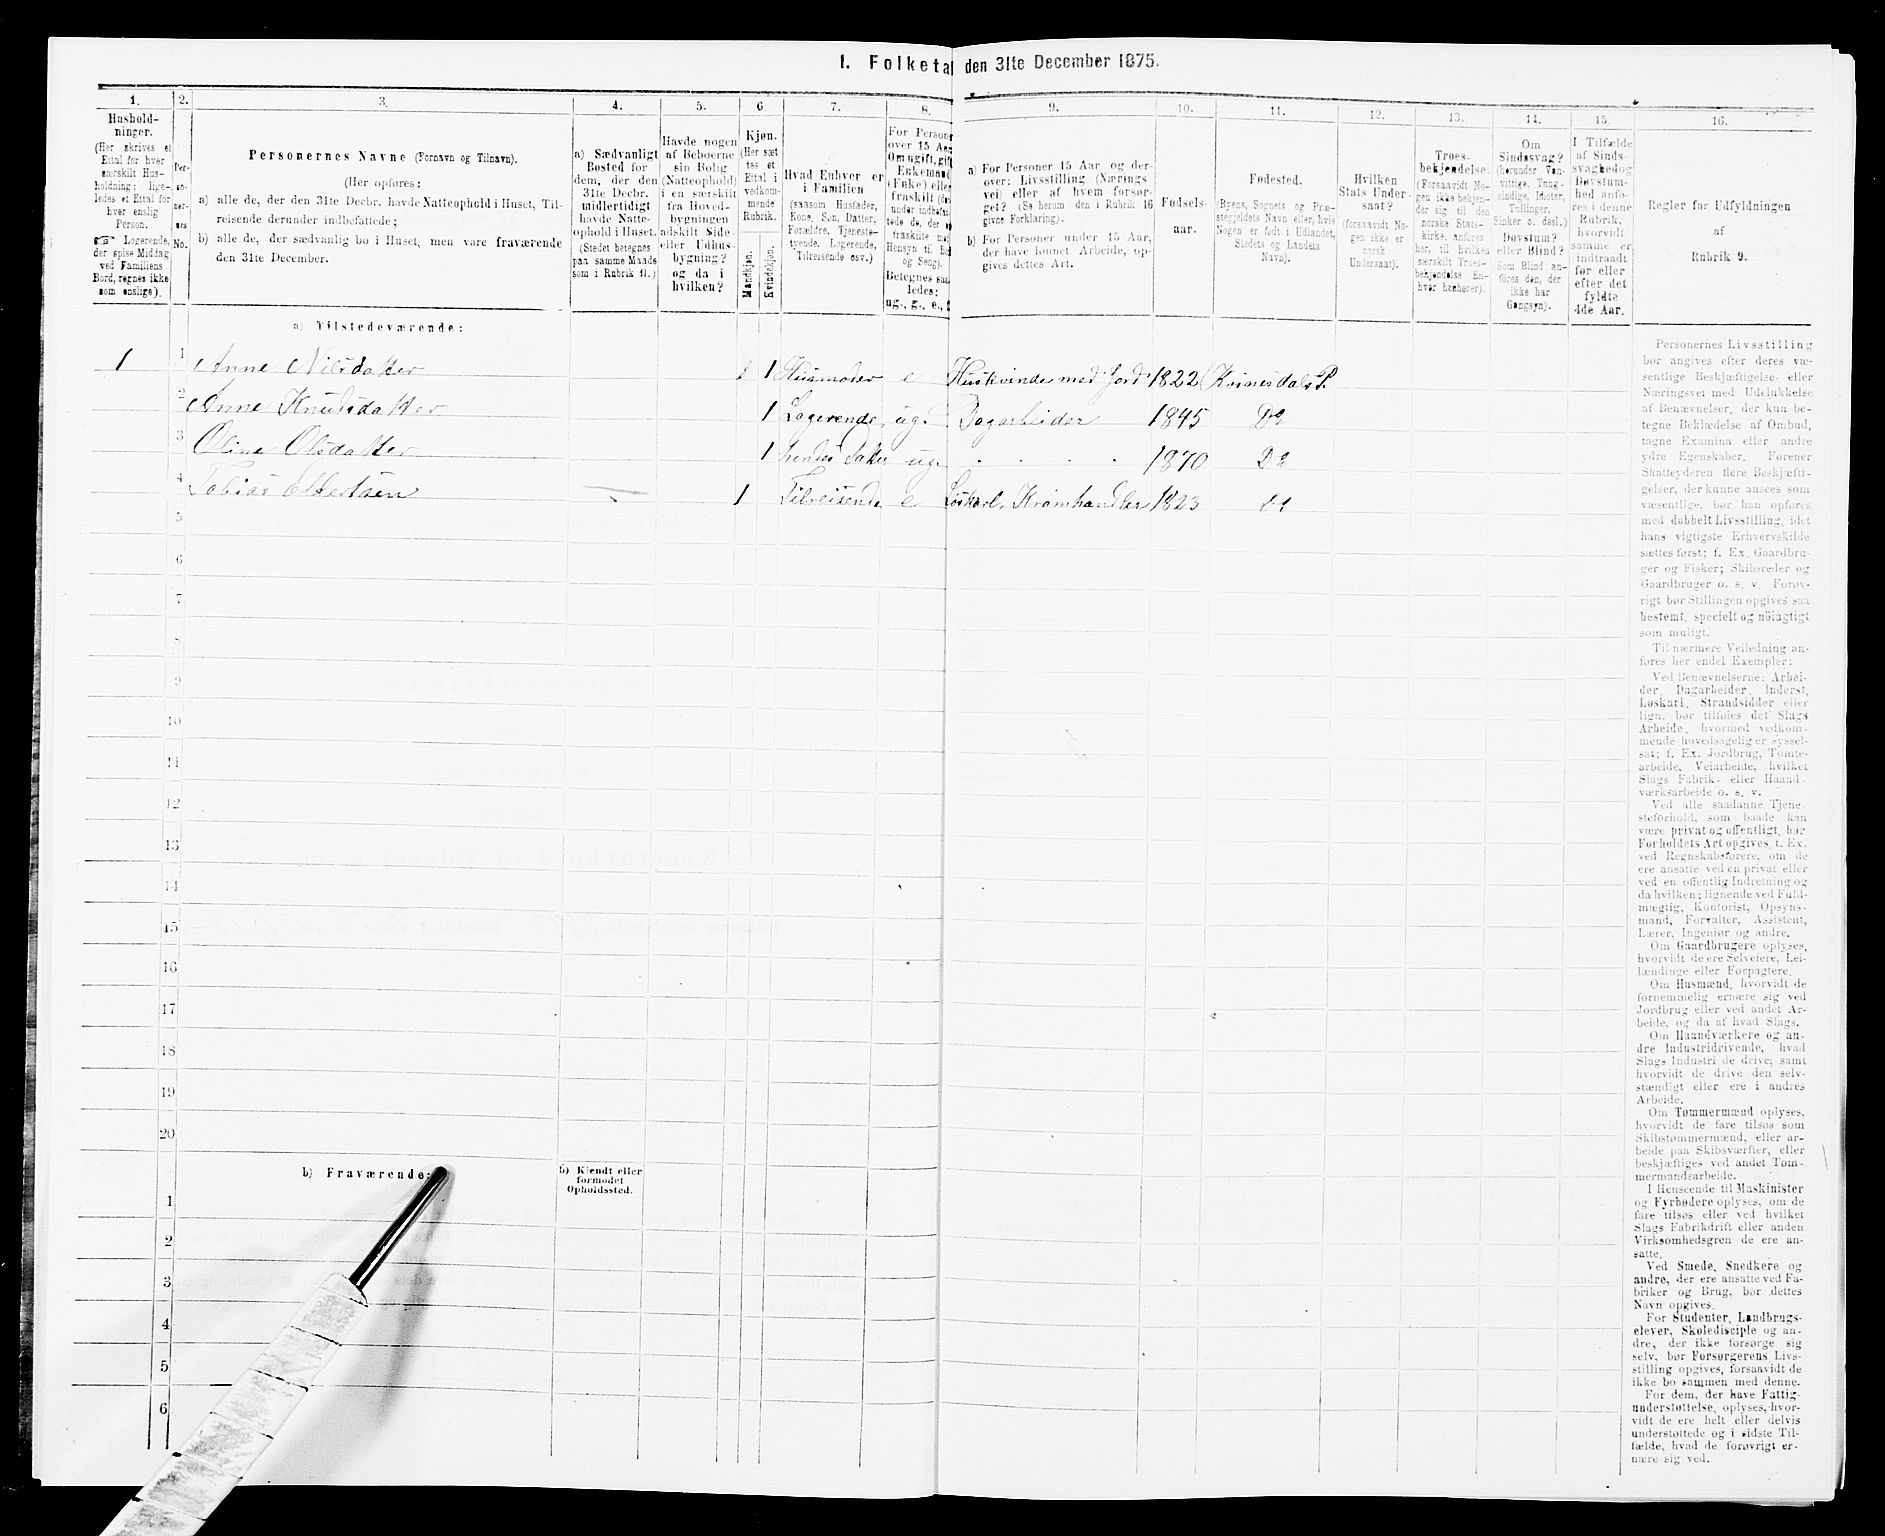 1. Folketa den 31te December 1875.
1. 2. 3. 4. 5. 6. 7. 8. 9. 10. 11. 12. 13. 14. 15. 16.
Hushold-
ninger.
(Her skrives et
Ettal for hver
særskilt Hus-
holdning; lige-
ledes et Ettal for
hver enslig
Person.
☞ Logerende,
der spise Middag
ved Familiens
Bord, regnes ikke
som enslige).
Per-
so-
ner-
nes
No.
Personernes Navne (Fornavn og Tilnavn).
(Her opføres:
a) alle de, der den 31te Decbr. havde Natteophold i Huset, Til-
reisende derunder indbefattede;
b) alle de, der sædvanlig bo i Huset, men vare fraværende
den 31te December.
a) Sædvanligt
Bosted for
dem, der den
31te Decbr.
midlertidigt
havde Natte-
ophold i Huset.
(Stedet betegnes
paa samme Maade
som i Rubrik 11.)
Havde nogen
af Beboerne
sin Bolig
(Natteophold)
i en særskilt
fra Hoved-
bygningen
adskilt Side-
eller Udhus-
bygning?
og da i
hvilken?
Kjøn.
(Her sæt-
tes et
Ettal i
vedkom-
mende
Rubrik.
Mandkjøn.
Kvindekjøn.
Hvad Enhver er
i Familien
(saasom Husfader,
Kone, Søn, Datter,
Forældre, Tjeneste-
tyende, Logerende,
Tilreisende osv.)
For Person
over 15 Aar
Om ugift, gift
Enkemand
(Enke) eller
fraskilt (der-
under indbefat-
tede de, der ere
fraskilte med
Hensyn til Bord
og Seng).
Betegnes saa-
ledes:
ug., g., e., f
a) For Personer 15 Aar og der-
over: Livsstilling (Nærings-
vei) eller af hvem forsør-
get? (Se herom den i Rubrik 16
givne Forklaring).
b) For Personer under 15 Aar,
der have lønnet Arbeide, op-
gives dettes Art.
Fødsels-
aar.
Fødested.
(Byens, Sognets og Præ-
stegjeldets Navn eller, hvis
Nogen er født i Udlandet,
Stedets og Landets
Navn).
Hvilken
Stats Under-
saat?
(forsaavidt No-
gen ikke er
norsk
Undersaat).
Troes-
bekjendelse.
(Forsaavidt No-
gen ikke bekjen-
der sig til den
norske Stats-
kirke, anføres
her, til hvilken
særskilt Troes-
bekjendelse En-
hver henhører).
Om
Sindssvag?
(herunder Van-
vittige, Tung-
sindige, Idioter,
Tullinger,
Sinker o. desl.)
Døvstum?
eller Blind?
Som Blind an-
føres den, der
ikke har
Gangsyn).
I Tilfælde
af Sinds-
svaghed og
Døvstum-
hed anfø-
res i denne
Rubrik,
hvorvidt
samme er
indtraadt
før eller
efter det
fyldte
4de Aar.
Regler for Udfyldningen
af
Rubrik 9.
a) Tilstedeværende:
1 1 Anne Nilsdatter 1 Husmoder e Huskvinde med Jord 1822 Kvinesdals P.
2 Anne Knudsdatter 1 Logerende, ug. Dagarbeider 1845 Do
3 Oline Olsdatter 1 hendes Datter ug. 1870 Do
4 Tobias Elbertsen 1 Tilreisende e Løskarl, Kramhandler 1823 Do
5
6
7
8
9
10
11
12
13
14
15
16
17
18
19
20
b) Fraværende:
b) Kjendt eller
formodet
Opholdssted.
1
2
3
4
5
6
Personernes Livsstilling
bør angives efter deres væ-
sentlige Beskjæftigelse eller
Næringsvei med Udelukkelse
af Benævnelser, der kun be-
tegne Beklædelse af Ombud,
tagne Examina eller andre
ydre Egenskaber. Forener
Skatteyderen flere Beskjæfti-
gelser, der kunne ansees som
væsentlige, bør han opføres
med dobbelt Livsstilling, idet
hans vigtigste Erhvervskilde
sættes først; f. Ex. Gaardbru-
ger og Fisker; Skibsreder og
Gaardbruger o. s. v. Forøv-
rigt bør Stillingen opgives saa
bestemt, specielt og nöiagtigt
som muligt.
Til nærmere Veiledning an-
føres her endel Exempler:
Ved Benævnelserne: Arbei-
der, Dagarbeider, Inderst,
Løskarl, Strandsidder eller
lign. bør tilføies det Slags
Arbeide, hvormed vedkom-
mende hovedsagelig er syssel-
sat; f. Ex. Jordbrug, Tomte-
arbeide, Veiarbeide, hvilket
Slags Fabrik- eller Haand-
værksarbeide o. s. v.
Ved alle saadanne Tjene-
steforhold, som baade kan
være privat og offentligt, bør
Forholdets Art opgives, f. Ex.
ved Regnskabsførere, om de
ere ansatte ved en privat eller
ved en offentlig Indretning og
da hvilken; lignende ved Fuld-
mægtig, Kontorist, Opsyns-
mand, Forvalter, Assistent,
Lærer, Ingeniør og andre.
Om Gaardbrugere oplyses,
hvorvidt de ere Selveiere, Lei-
lændinge eller Forpagtere.
Om Husmænd, hvorvidt de
fornemmelig ernære sig ved
Jordbrug eller ved andet Ar-
beide, og da af hvad Slags.
Om Haandværkere og an-
dre Industridrivende, hvad
Slags Industri de drive; samt
hvorvidt de drive den selv-
stændigt eller ere i andres
Arbeide.
Om Tømmermænd oplyses,
hvorvidt de fare tilsøs som
Skibstømmermænd, eller ar-
beide paa Skibsværfter, eller
beskjæftiges ved andet Tøm-
mermandsarbeide.
I Henseende til Maskinister
og Fyrbødere oplyses, om de
fare tilsøs eller ved hvilket
Slags Fabrikdrift eller anden
Virksomhedsgren de ere an-
satte.
Ved Smede, Snedkere og
andre, der ere ansatte ved Fa-
briker og Brug, bør dettes
Navn opgives.
For Studenter, Landbrugs-
elever, Skoledisciple og an-
dre, der ikke forsørge sig
selv, bør Forsørgerens Livs-
stilling opgives, forsaavidt de
ikke bo sammen med denne.
For dem, der have Fattig-
understøttelse, oplyses, hvor-
vidt de ere helt eller delvis
understøttede og i sidste Til-
fælde, hvad de forøvrigt er-
nære sig ved.